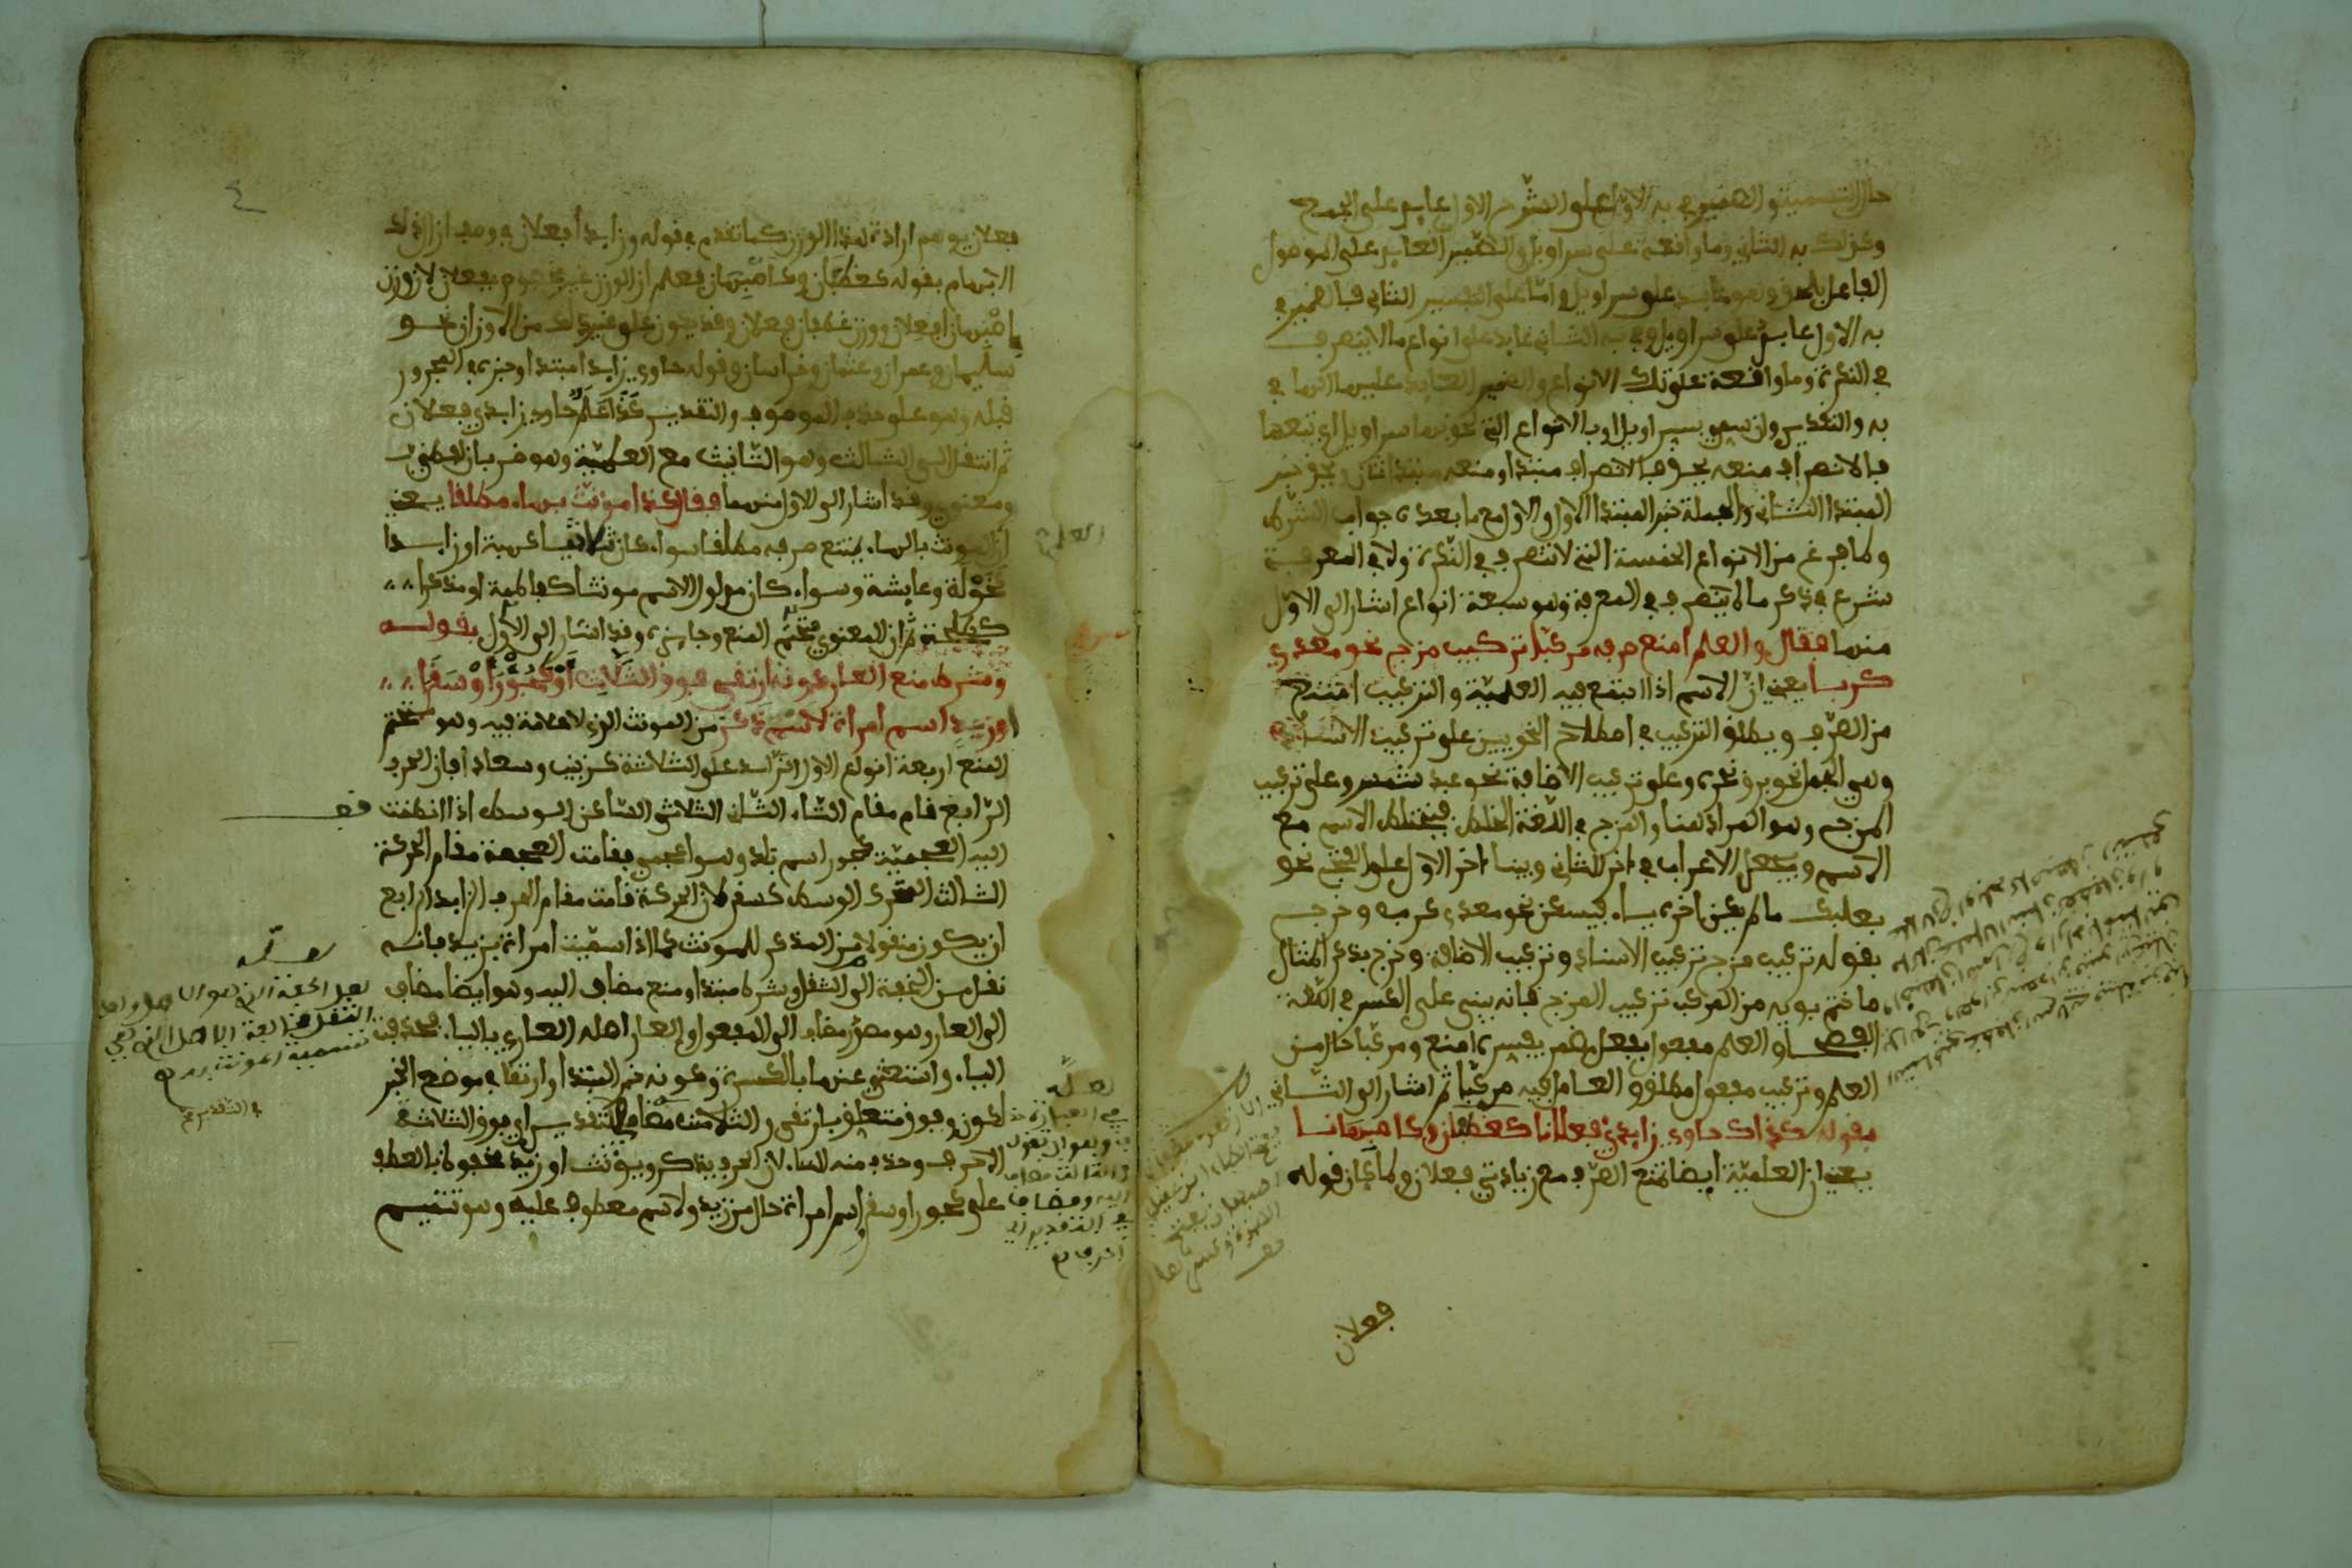 حال التسمية والضمير في به الاول على الشرح الاول عايد على الجمع
وكذلك به الثاني وما واقعة على سراويل والضمير العايد على الموصول
الفاعل بلحق وهو عايد على سراويل واما على التفسير الثاني فالضمير في
به الاول عايد على سراويل وفي به الثاني عايد على انواع ما لا ينصرف
في النكرة وما واقعة على تلك الانواع والضمير العايد عليها الهاء في
به والتقدير وان سمي بسراويل او بالانواع التي لحق بها سراويل اي تبعها
فالانصراف منعه يحق فالانصراف مبتدا ومنعه مبتدا ثان ويحق خبر
المبتدا الثاني والجملة خبر المبتدا الاول والاول مع ما بعده جواب الشرط
ولما فرغ من الانواع الخمسة التي لا تنصرف في النكرة ولا في المعرفة
شرع في ذكر ما لا ينصرف في المعرفة وهو سبعة انواع اشار الى الاول
منها فقال والعلم امنع صرفه مركبا تركيب مزج نحو معدي
كربا يعني ان الاسم اذا اجتمع فيه العلمية والتركيب امتنع
من الصرف ويطلق التركيب في اصطلاح النحويين على تركيب الاسناد
وهي الجمل نحو برق نحره وعلى تركيب الاضافة نحو عبد شمس وعلى تركيب
المزج وهو المراد هنا والمزج في اللغة الخلط فيختلط الاسم مع
الاسم ويجعل الاعراب في اخر الثاني وبناء اخر الاول على الفتح نحو
بعلبك ما لم يكن اخره ياء فيسكن نحو معدي كرب وخرج
بقوله تركيب مزج تركيب الاسناد وتركيب الاضافة وخرج بذكر المثال
ما ختم بويه من المركب تركيب المزج فانه يبنى على الكسر في اللغة
الفصحى والعلم مفعول بفعل مضمر يفسره امنع ومركبا حال من
العلم وتركيب مفعول مطلق والعامل فيه مركبا ثم اشار الى الثاني
بقوله كذاك حاوي زايدي فعلانا كغطفان وكاصبهانا
يعني ان العلمية ايضا تمنع الصرف مع زيادتي فعلان ولما كان قوله
فعلان
فعلان يوهم ارادة هذا الوزن كما تقدم في قوله وزايدا فعلان في وصف ازال ذلك
الابهام بقوله كغطفان وكاصبهان فعلم ان الوزن غير مخصوص بفعلان لان وزن
اصبهان افعلان ووزن غطفان فعلان وقد يكون على غير ذلك من الاوزان نحو
سليمان وعمران وعثمان وخراسان وقوله حاوي زايدا مبتدا وخبره في المجرور
قبله وهو على حذف الموصوف والتقدير كذا علم حاوي زايدي فعلان
ثم انتقل الى الثالث وهو التانيث مع العلمية وهو ضربان لفظي
ومعنوي وقد اشار الى الاول منهما فقال كذا مونث بهاء مطلقا يعني
ان المونث بالهاء يمتنع صرفه مطلقا سواء كان ثلاثيا كهبة او زايدا
كخولة وعايشة وسواء كان مدلول الاسم مونثا كفاطمة او مذكرا
كطلحة ثم ان المعنوي متحتم المنع وجايزه وقد اشار الى الاول بقوله
وشرط منع العار كونه ارتقى فوق الثلاث او كجور او سقر
او زيد اسم امراة لا اسم ذكر من المونث الذي لا علامة فيه وهو متحتم
المنع اربعة انواع الاول الزايد على الثلاثة كزينب وسعاد فان الحرف
الرابع قام مقام التاء الثاني الثلاثي الساكن الوسط اذا انضمت
اليه العجمية كجور اسم بلد وهو اعجمي فقامت العجمة مقام الحركة
الثالث المتحرك الوسط كسقر لان الحركة قامت مقام الحرف الزايد الرابع
ان يكون منقولا من المذكر للمونث كما اذا سميت امراة بزيد فانه
نقل من الخفة الى الثقل وشرط مبتدا ومنع مضاف اليه وهو ايضا مضاف
الى العار وهو مصدر مضاف الى المفعول والعار اصله العاري بالياء فحذفت
الياء واستغنى عنها بالكسرة وكونه خبر المبتدا وارتقى في موضع الخبر
لكون وفوق متعلق بارتقى والثلاث مضاف التقدير اي فوق الثلاثة
الاحرف وحذف منه التاء لان الحرف يذكر ويونث او زيد مخفوض بالعطف
على كجور او سقر واسم امراة حال من زيد ولا اسم معطوف عليه وهو تتميم